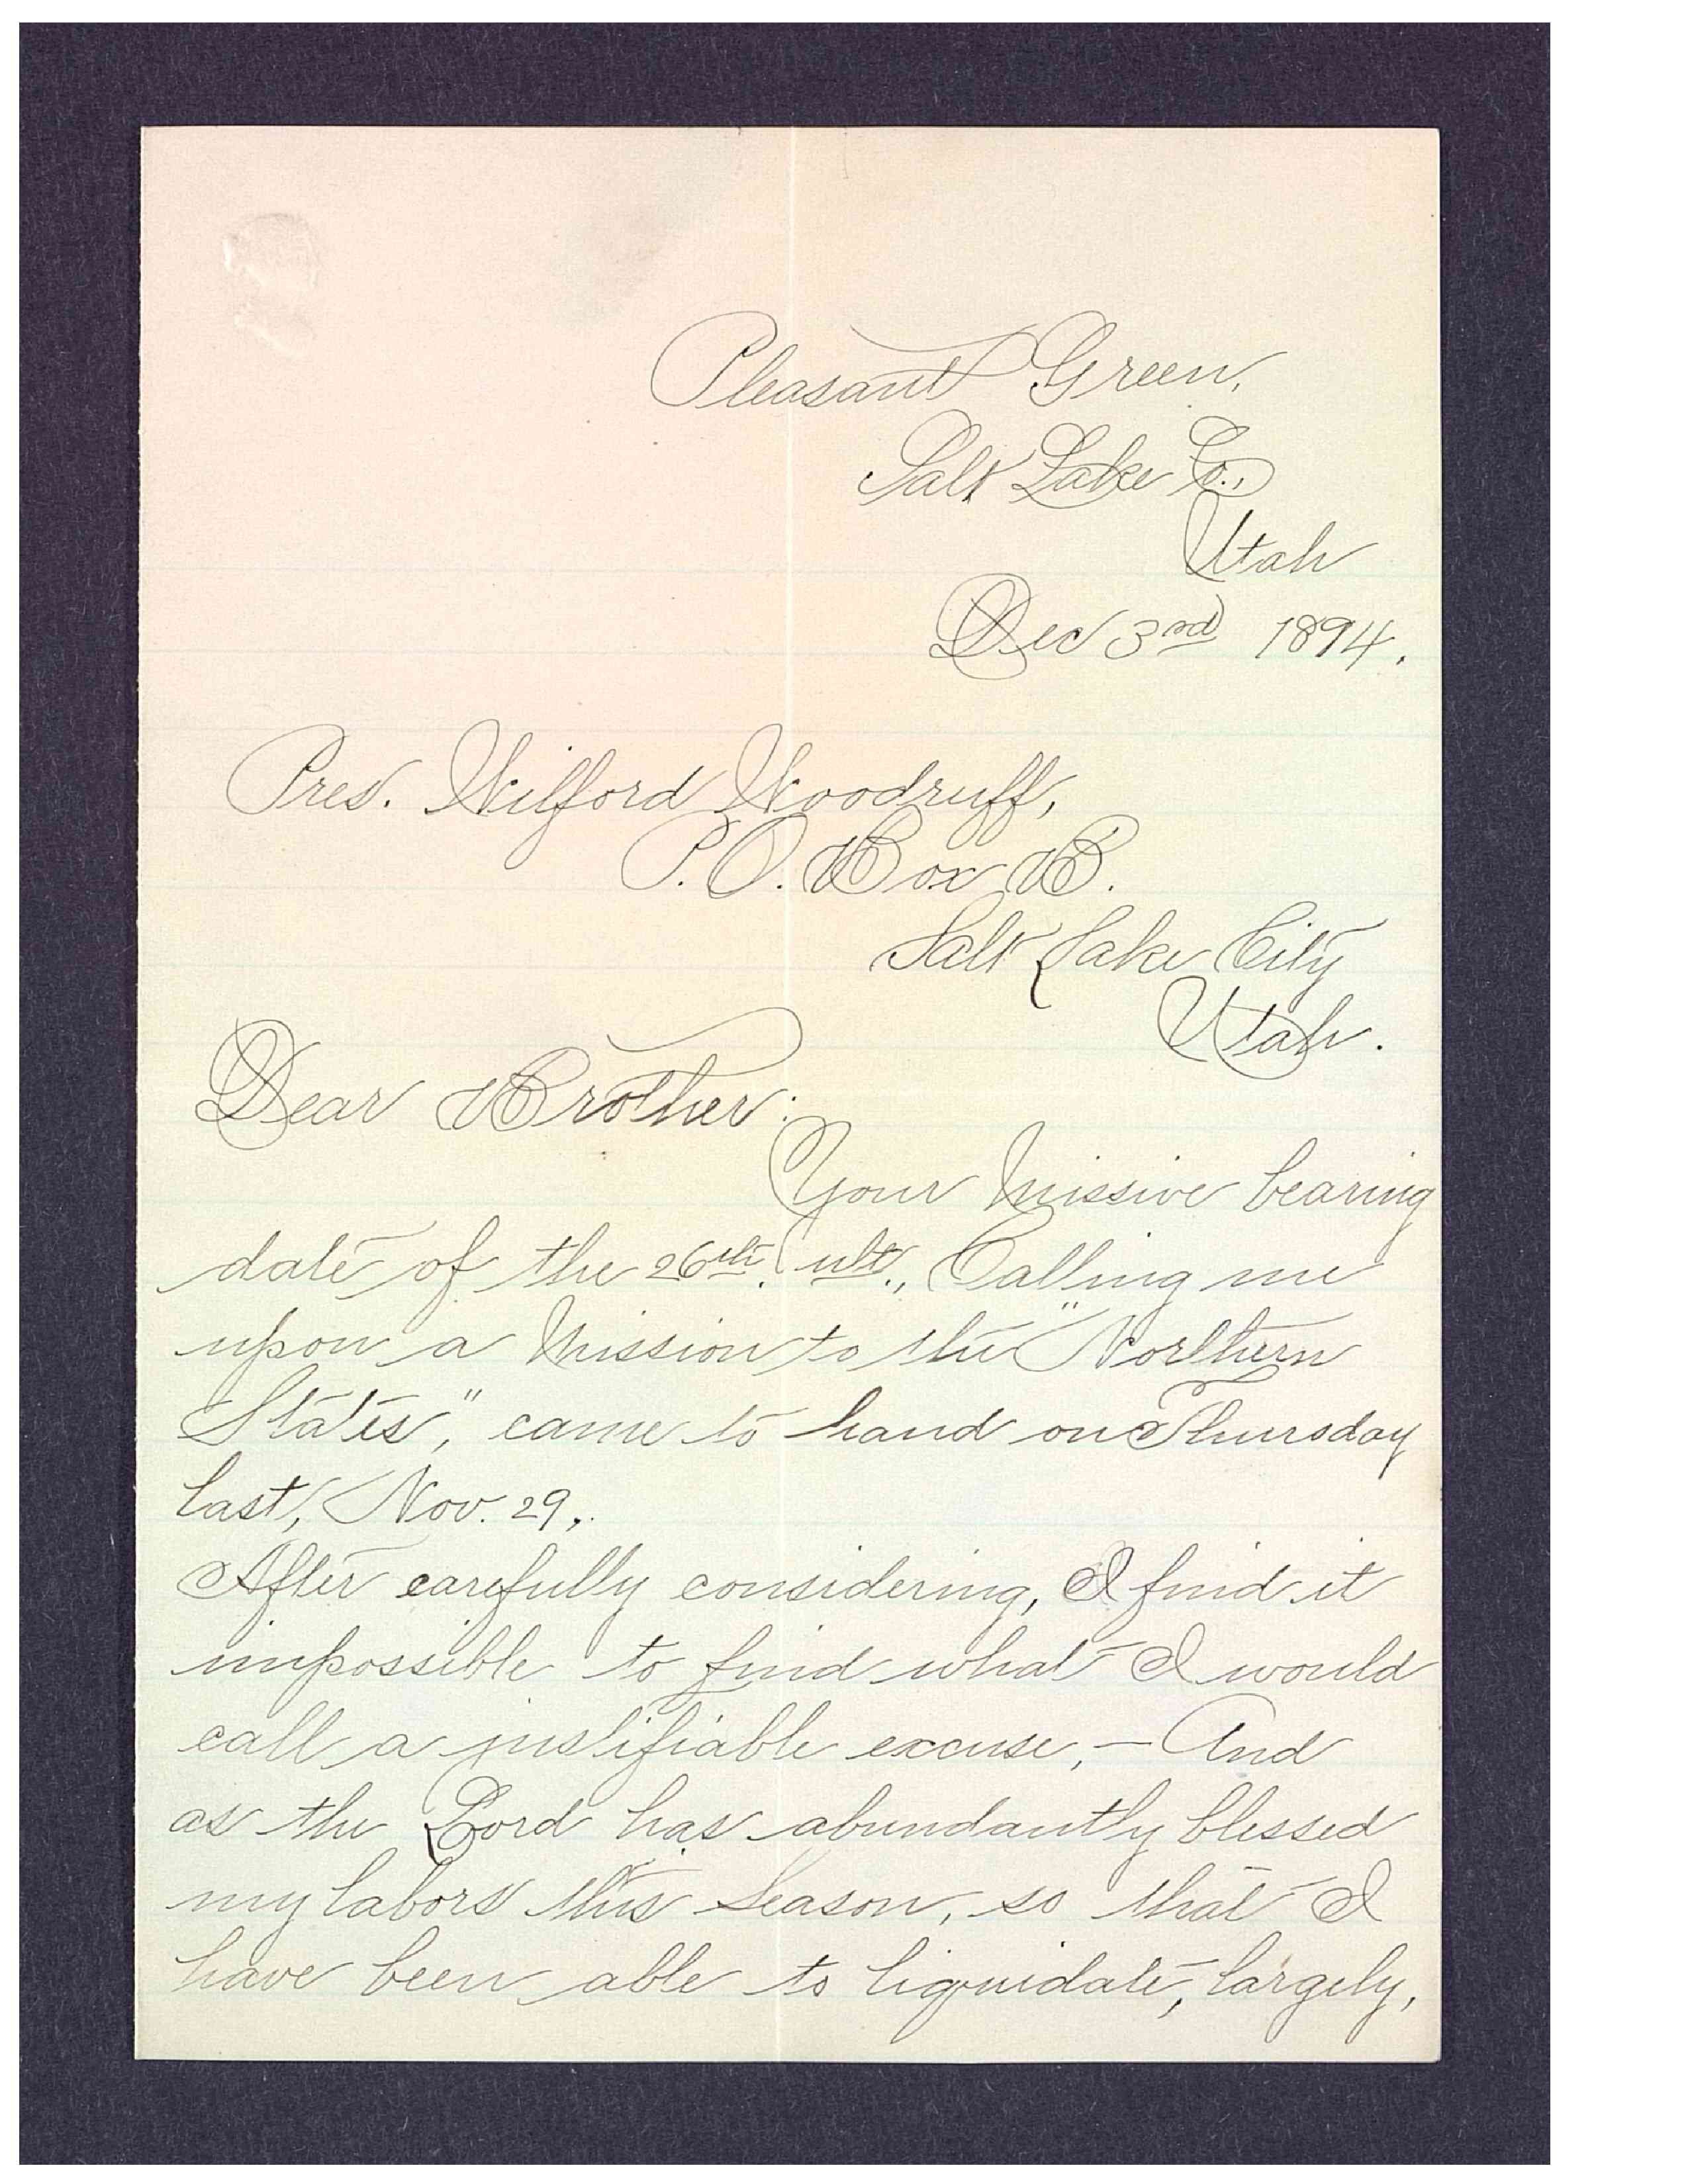 Pleasant Green,
Salt Lake Co.,
Utah
Dec 3rd 1894.
Pres. Wilford Woodruff,
P.O. Box B.
Salt Lake City
Utah.
Dear Brother:
Your Missive bearing
date of the 26th. ult., Calling me
upon a Mission to the "Northern
States," came to hand on Thursday
last, Nov. 29,.
After carefully considering, I find it
impossible to find what I would
call a justifiable excuse,— And
as the Lord has abundantly blessed
my labors this Season, so that I
have been able to liquidate, largely,